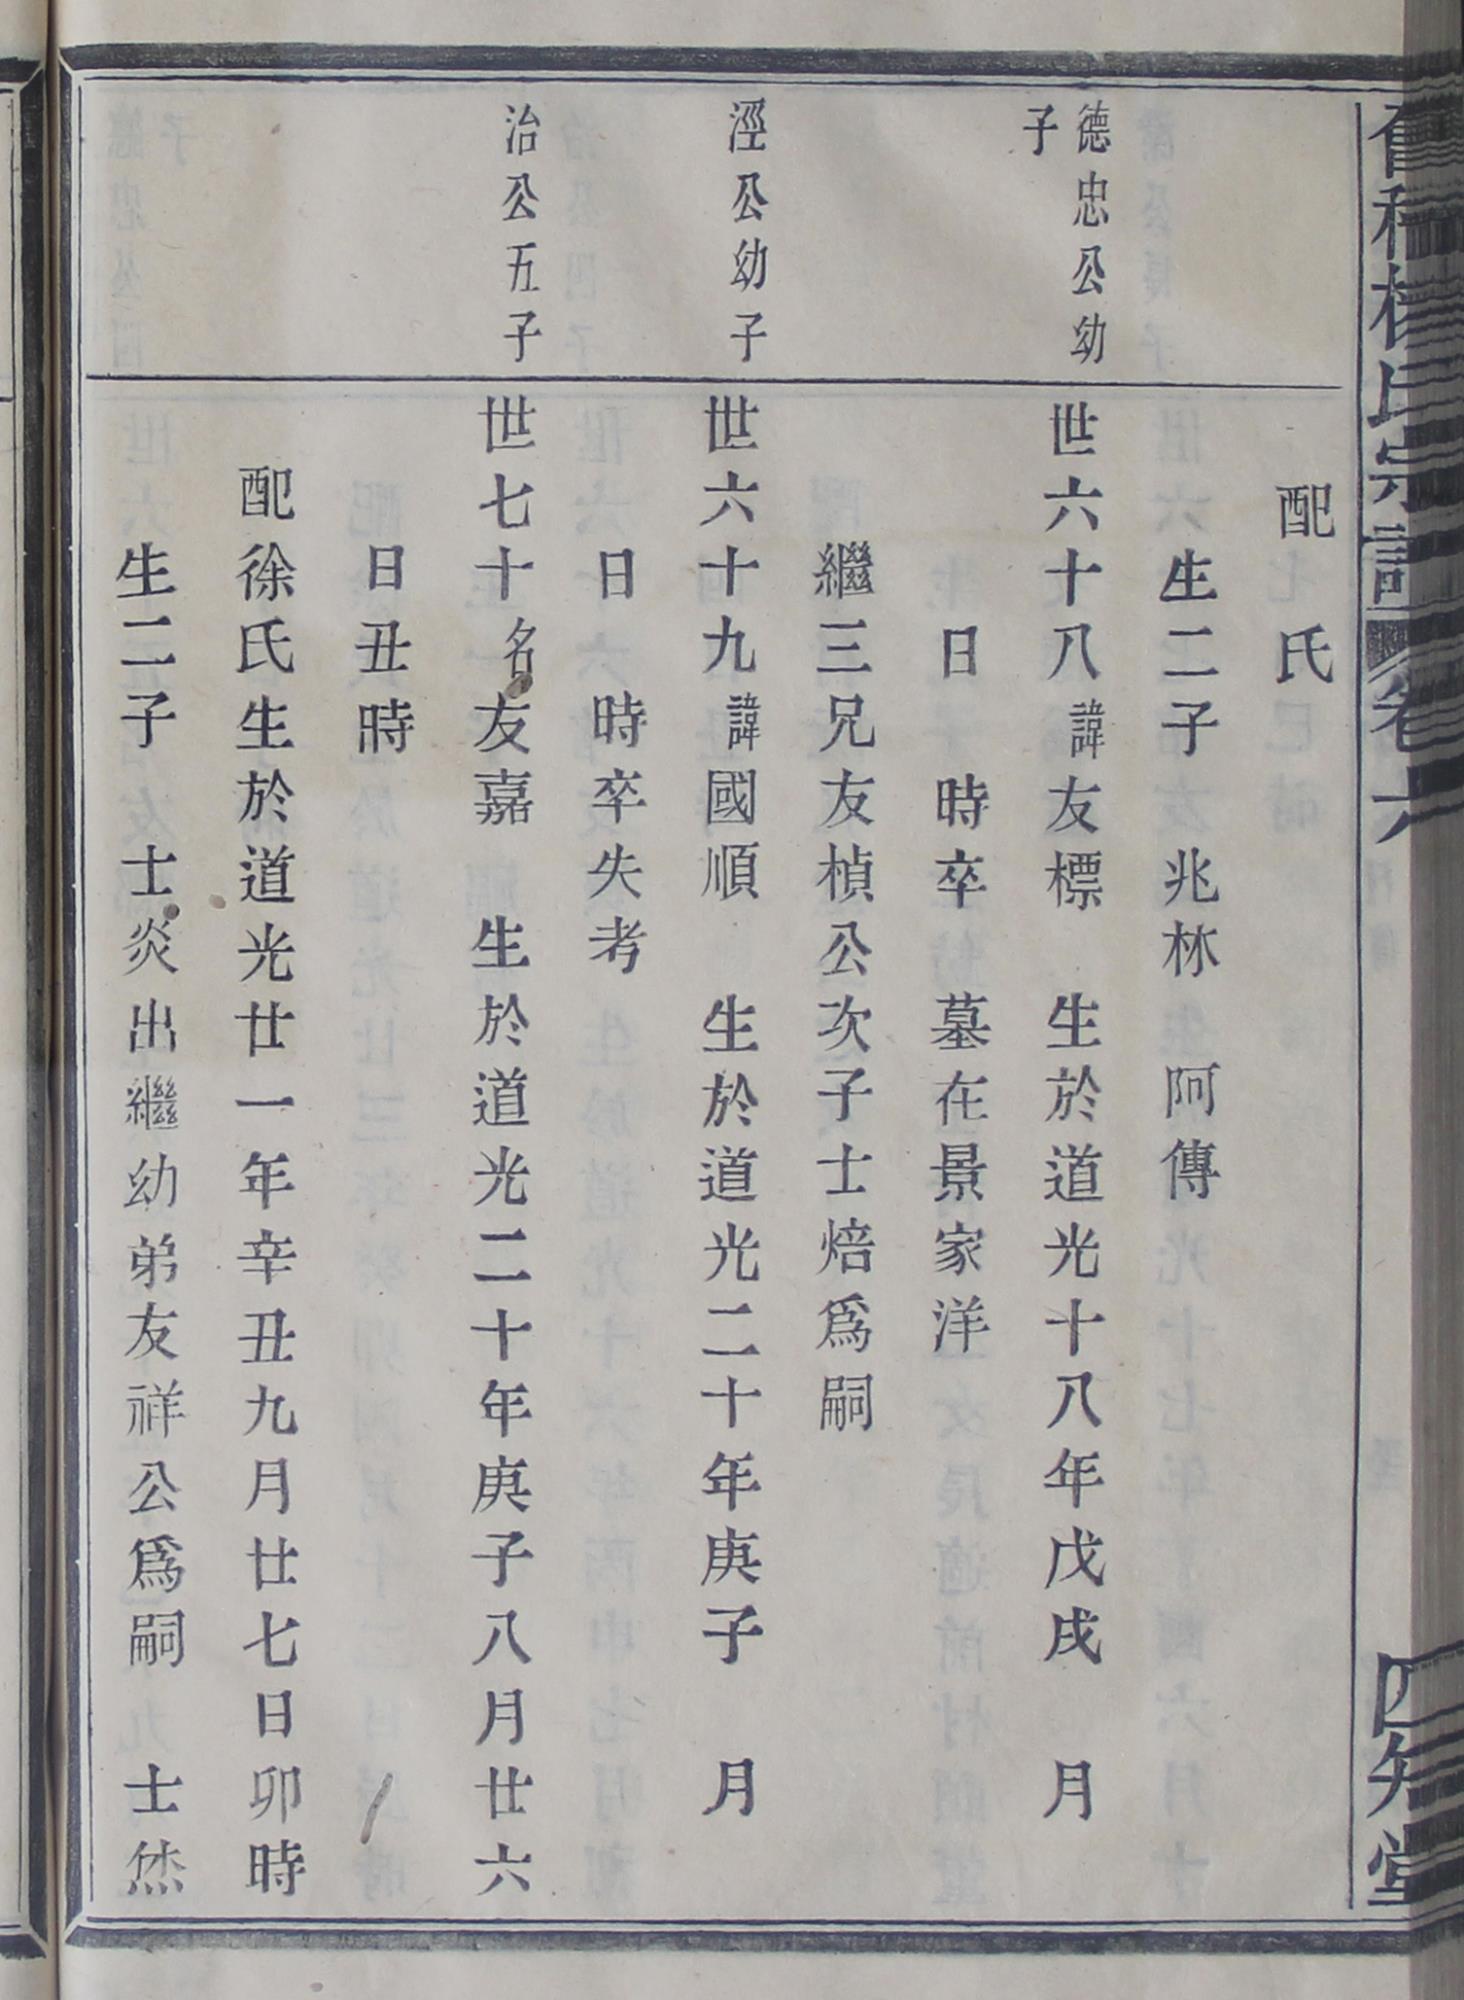 氏宗譜 卷六 四知堂
配 氏
生二子 兆林 阿傳
德忠公幼
子
世六十八諱友標 生於道光十八年戊戌 月
日 時卒 墓在景家洋
繼三兄友楨公次子士焙爲嗣
涇公幼子
世六十九諱國順 生於道光二十年庚子 月
日 時卒失考
治公五子
世七十名友嘉 生於道光二十年庚子八月廿六
日丑時
配徐氏生於道光廿一年辛丑九月廿七日卯時
生二子 士炎出繼幼弟友祥公爲嗣 士烋